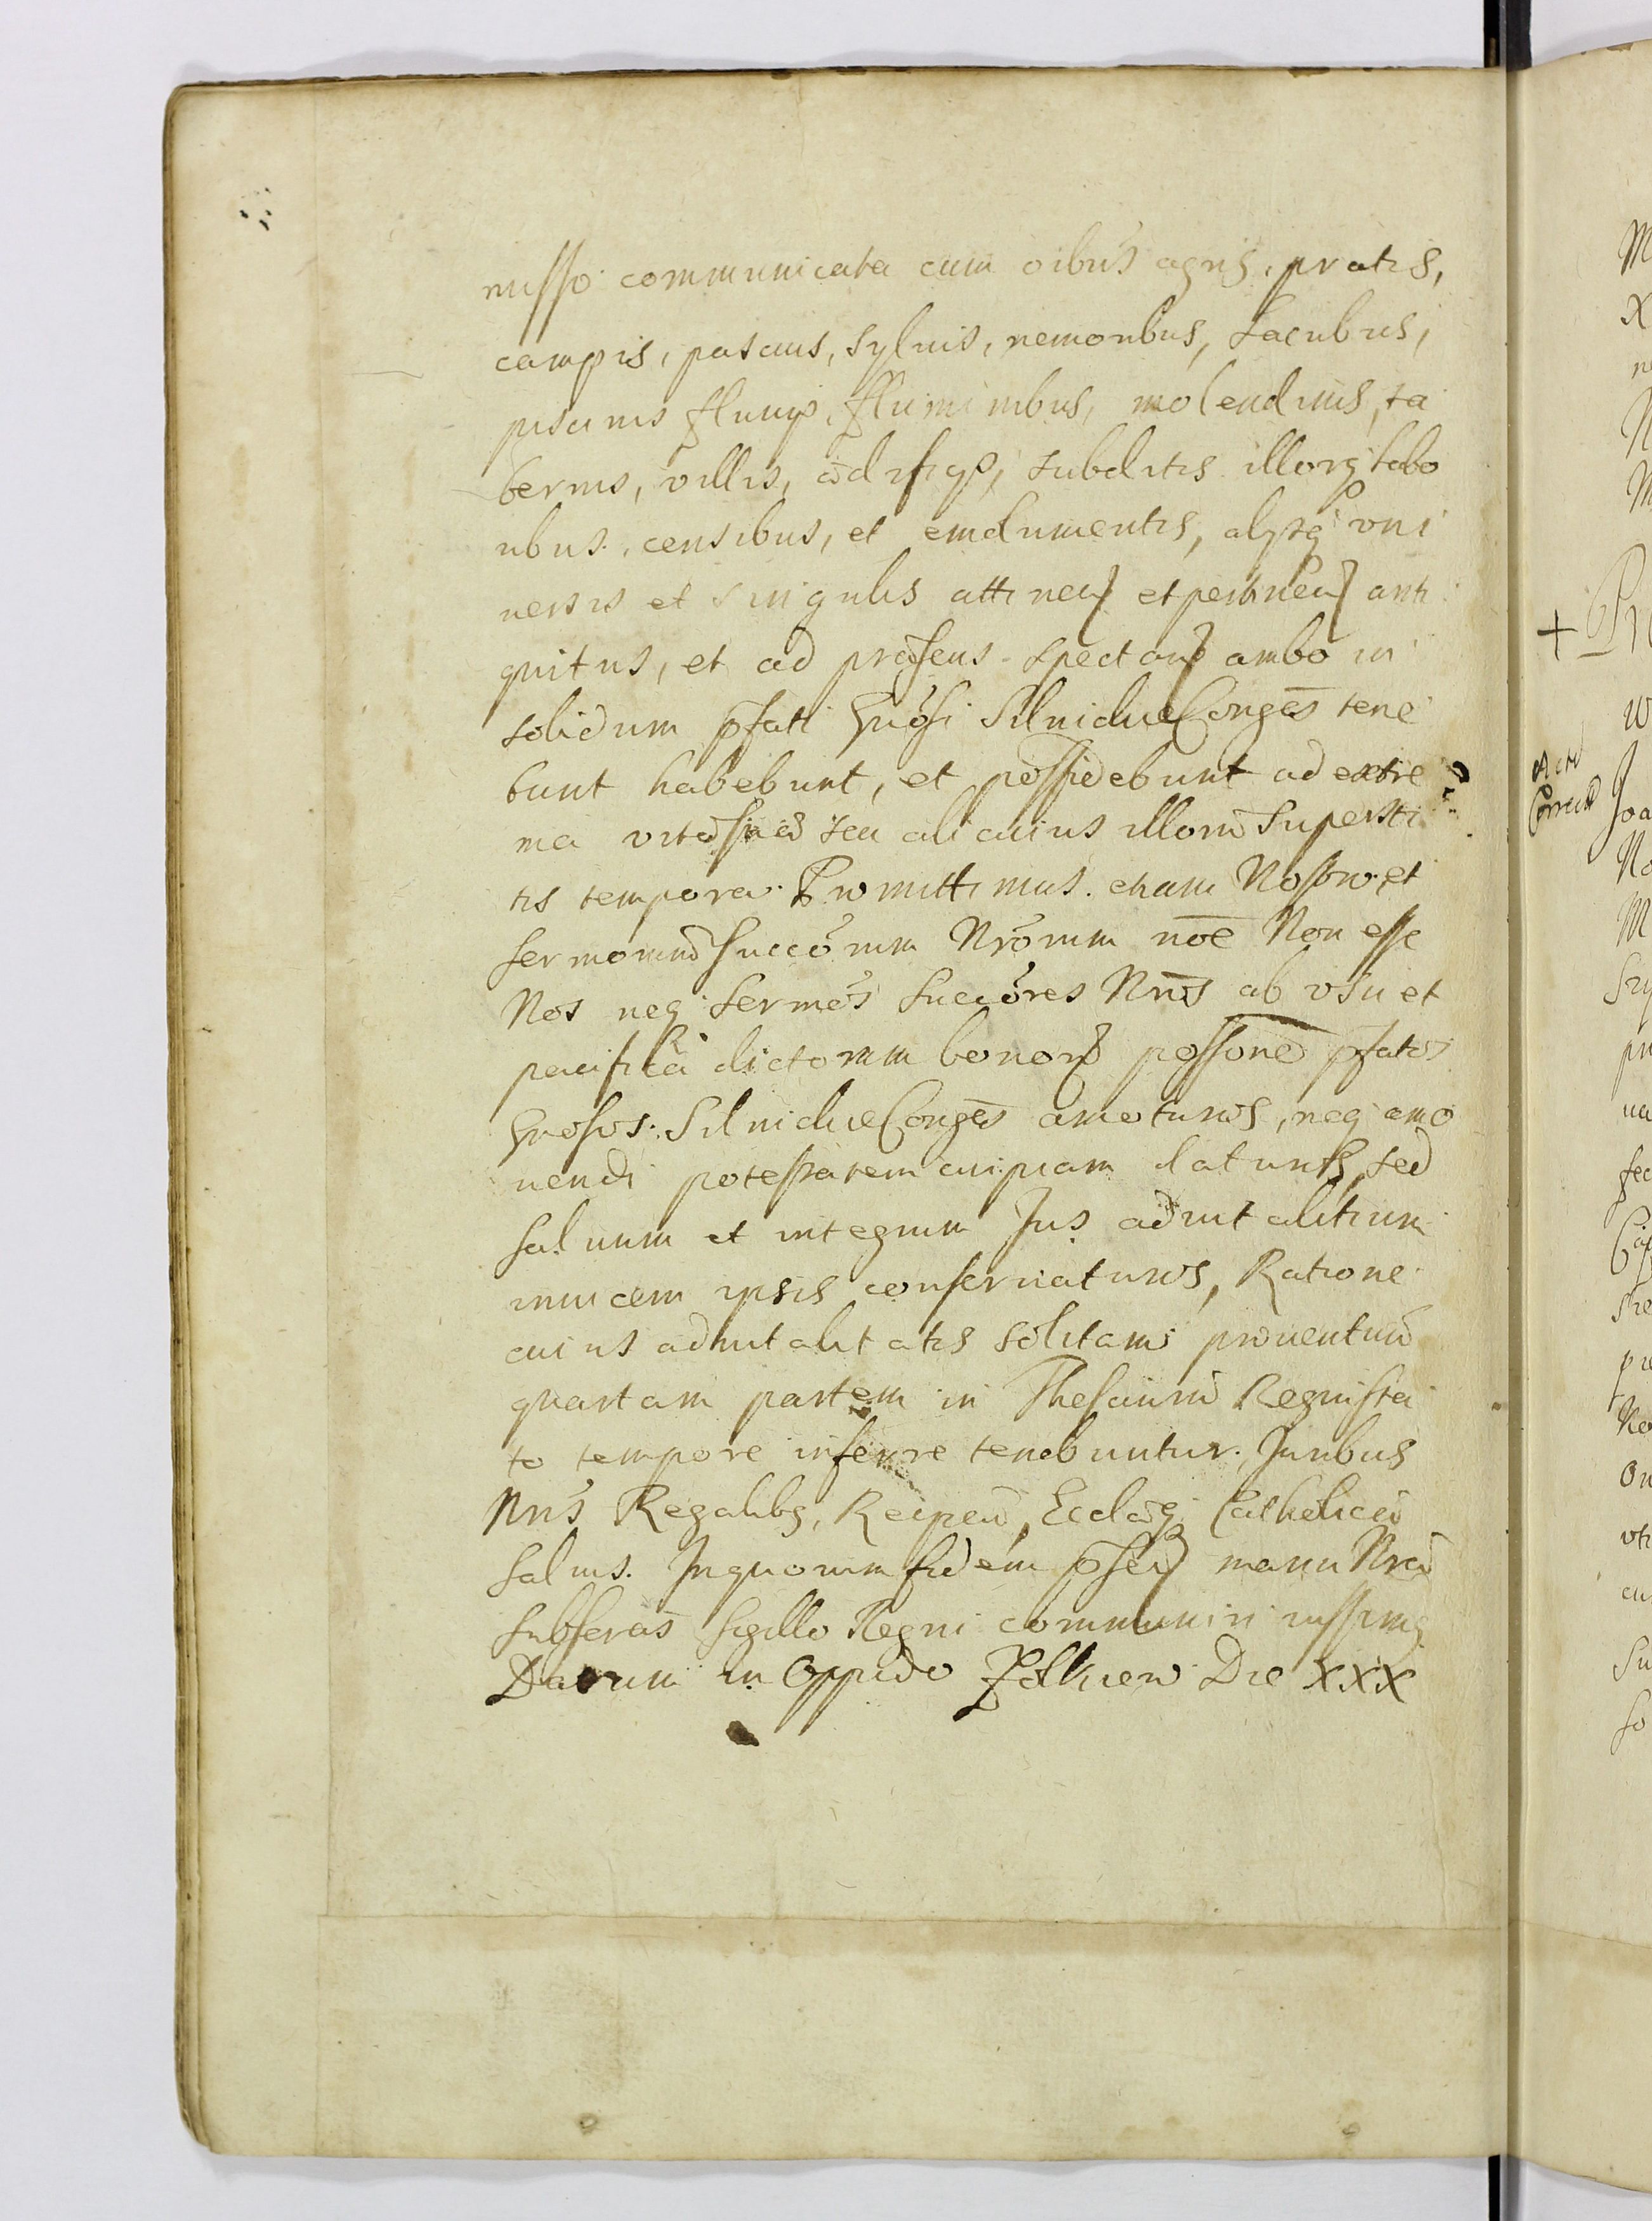 nisso communicata cum oibus agris, pratis,
campis, pascuis, sylvis, nemoribus, Lacubus,
piscinis fluuijs, fluminibus, molendinis, ta
bernis, villis, ædificijs, subditis illorq labo
ribus, censibus, et emolumentis, alijsq uni
uersis et singulis attinen et pertinen anti
quitus, et ad præsens spectan ambo in
solidum pfati Gnosi Silnicdue Conges tene
bunt habebunt, et possidebunt ad extre
ma vitæ suæ seu alicuius illorum supersti
tis tempora. Promittimus etiam Nostro et
sermorum succorum Nrorum noe Non esse
Nos neq sermos succores Nros ab usu et
pacifica dictorum bonor possone pfatos
Gnosos Silnicdue Conges amoturos, neq amo
uendi potestatem cuipiam daturos, sed
saluum et integrum Jus aduitalitium
inuicem ipsis conseruaturos, Ratione
cuius aduitalitatis solitam prouentuum
quartam partem in Thesaurum Regni sta
to tempore inferre tenebuntur. Juribus
Nris Regalibs, Reipcæ, Ecclæq Catholicæ
saluis. In quorum fidem psen manu Nra
subscras sigillo Regni communiri iussimq
Datum in Oppido Zolkiew Die XXX